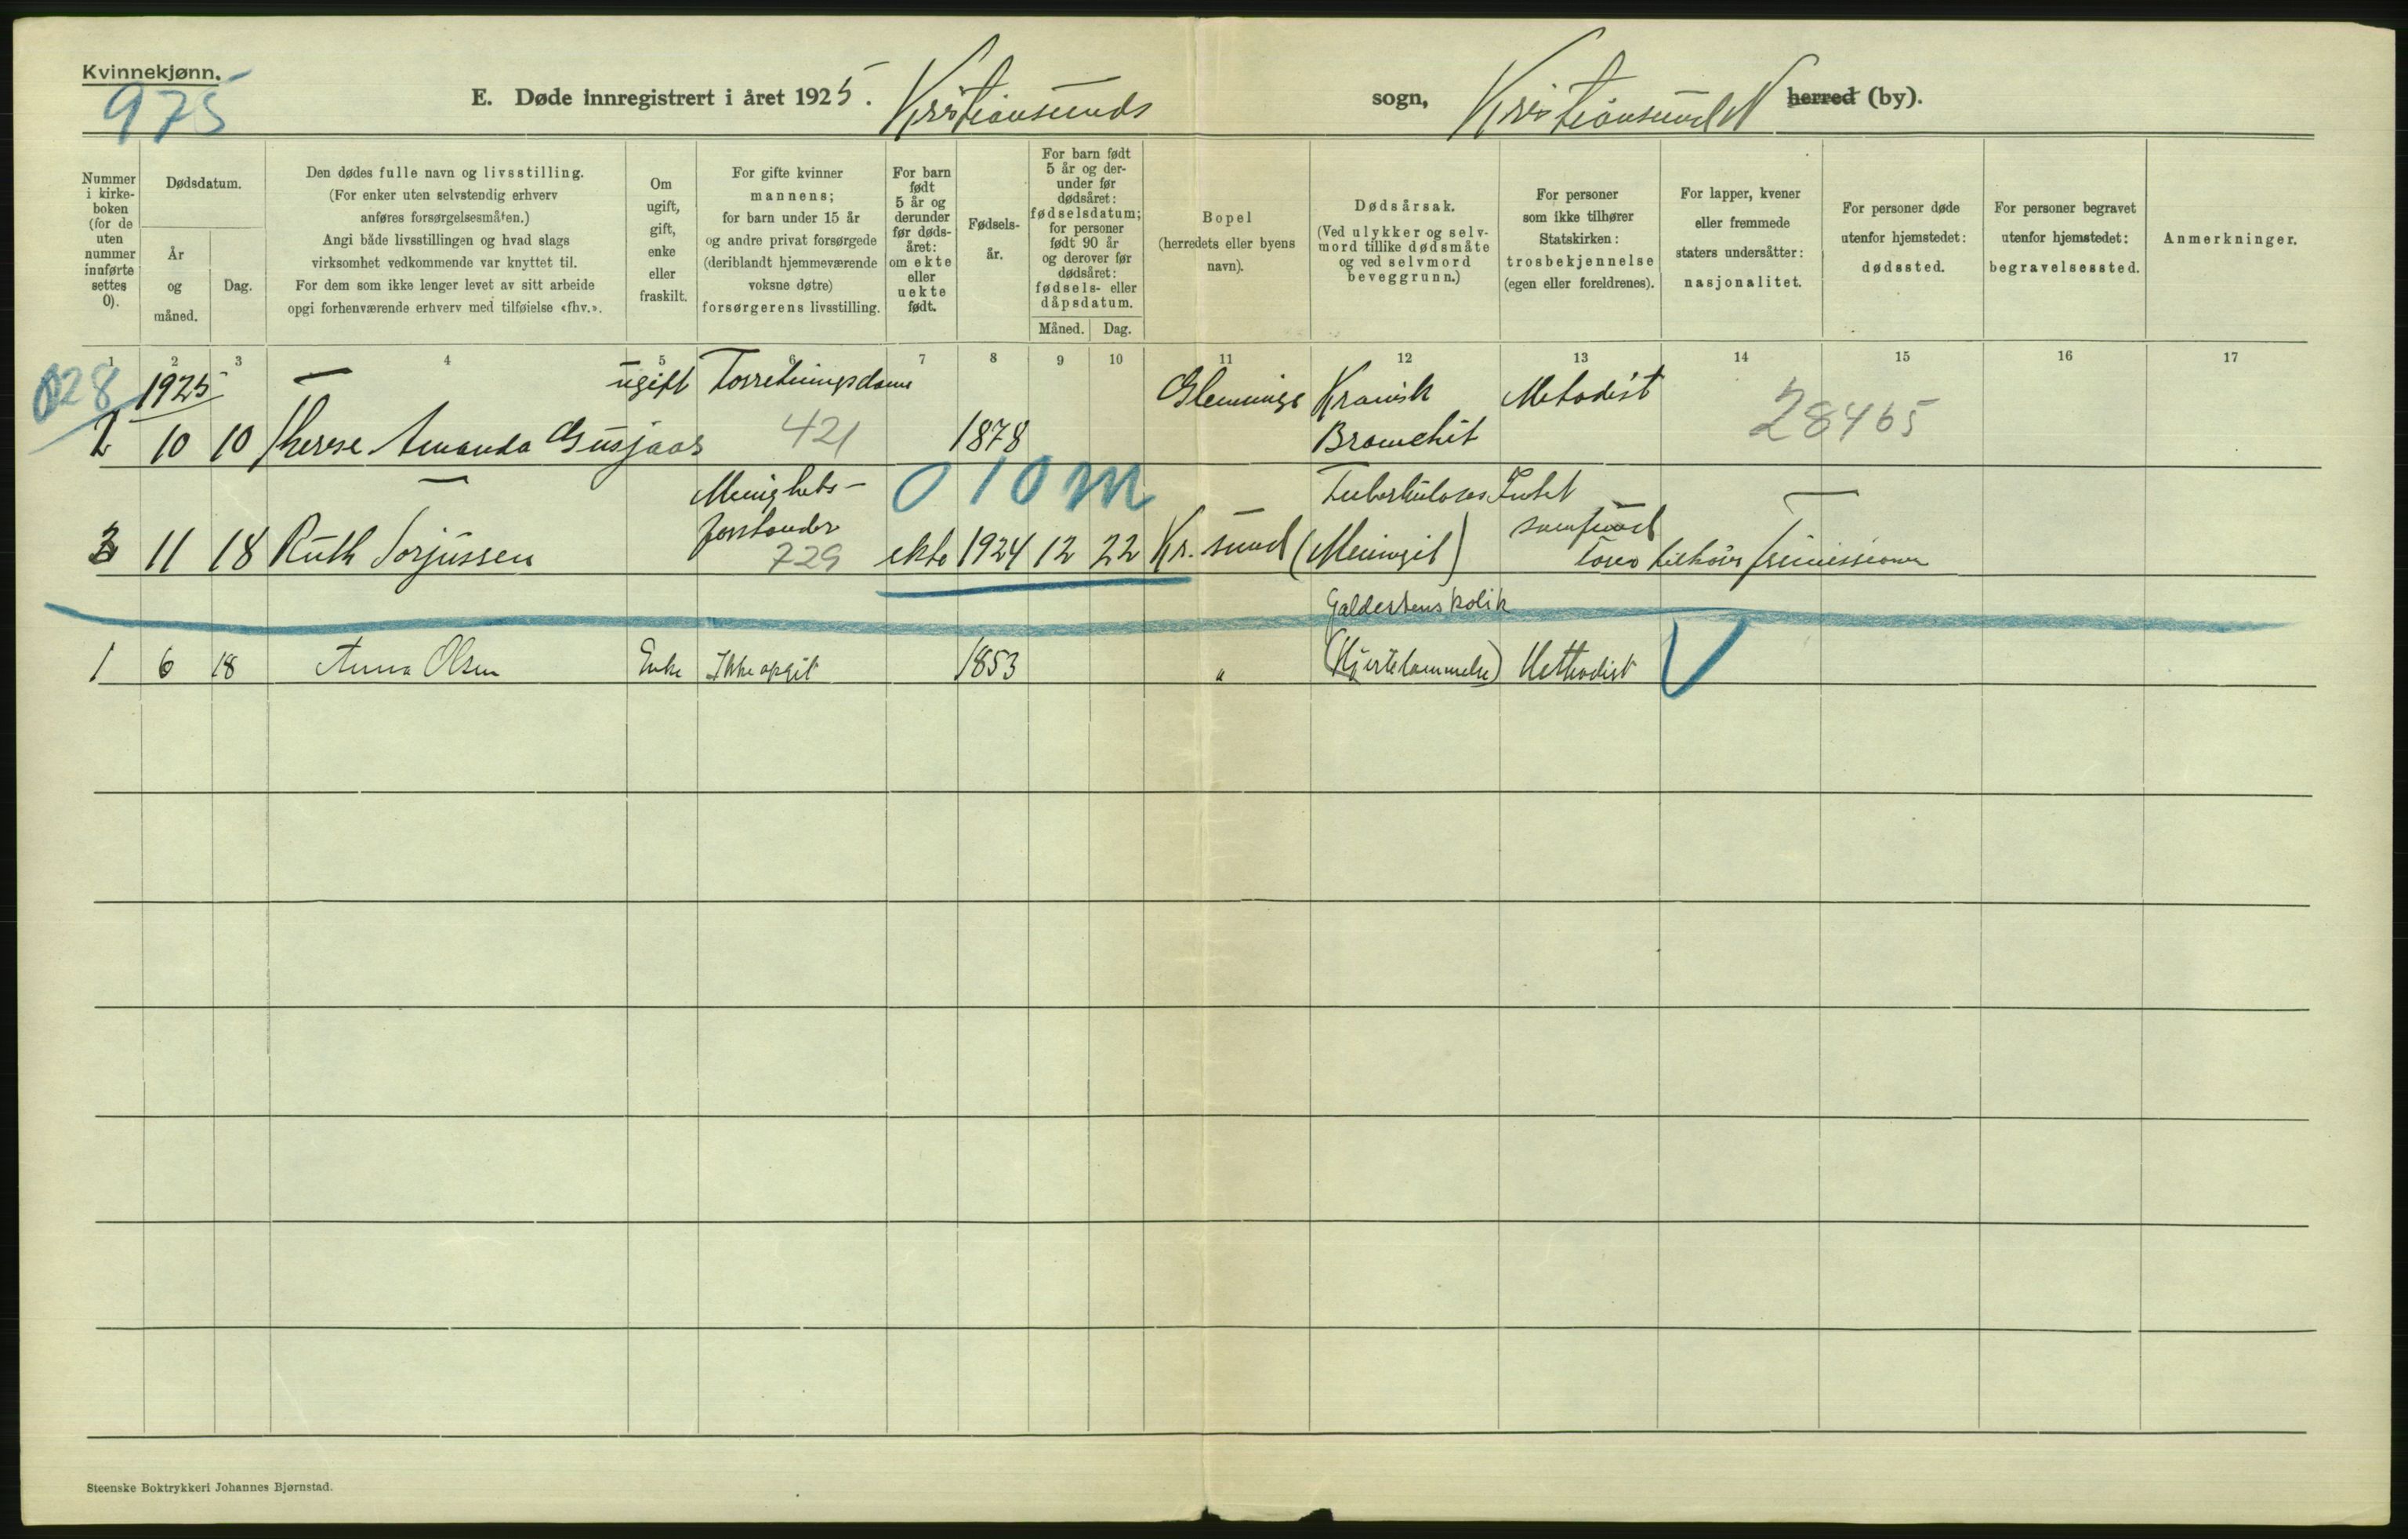 Kvinnekjønn.
975
E. Døde innregistrert i året 1925. Kristiansunds sogn, Kristiansund N herred (by).
Nummer i kirke-boken (for de uten nummer innførte settes 0).
Dødsdatum.
År og måned.
Dag.
Den dødes fulle navn og livsstilling.
(For enker uten selvstendig erhverv
anføres forsørgelsesmåten.)
Angi både livsstillingen og hvad slags
virksomhet vedkommende var knyttet til.
For dem som ikke lenger levet av sitt arbeide
opgi forhenværende erhverv med tilføielse «fhv.».
Om ugift, gift, enke eller fraskilt.
For gifte kvinner
mannens;
for barn under 15 år
og andre privat forsørgede
(deriblandt hjemmeværende
voksne døtre)
forsørgerens livsstilling.
For barn født 5 år og derunder før døds-året: om ekte eller uekte født.
Fødsels-år.
For barn født
5 år og der-
under før
dødsåret:
fødselsdatum;
for personer
født 90 år
og derover før
dødsåret:
fødsels- eller
dåpsdatum.
Måned. Dag.
Bopel
(herredets eller byens
navn).
Dødsårsak.
(Ved ulykker og selv-
mord tillike dødsmåte
og ved selvmord
beveggrunn.)
For personer
som ikke tilhører
Statskirken:
trosbekjennelse
(egen eller foreldrenes).
For lapper, kvener
eller fremmede
staters undersåtter:
nasjonalitet.
For personer døde
utenfor hjemstedet:
dødssted.
For personer begravet
utenfor hjemstedet:
begravelsessted.
Anmerkninger.
1 2 3 4 5 6 7 8 9 10 11 12 13 14 15 16 17
028 1925 ugift Forretningsdame Kronisk Metodist
2 10 10 Therese Amanda 421 1878 Bronchit 28465
Menighets- 0 10 m Tuberkuloses Intet
3 11 18 Ruth forstander samfund
729 ekte 1924 12 22 Kr. sund (Meningit)
Galdestenskolik
1 6 18 Anna Olsen Enke Ikke opgit 1853 " (Hjertelammelse) Methodist
Steenske Boktrykkeri Johannes Bjørnstad.